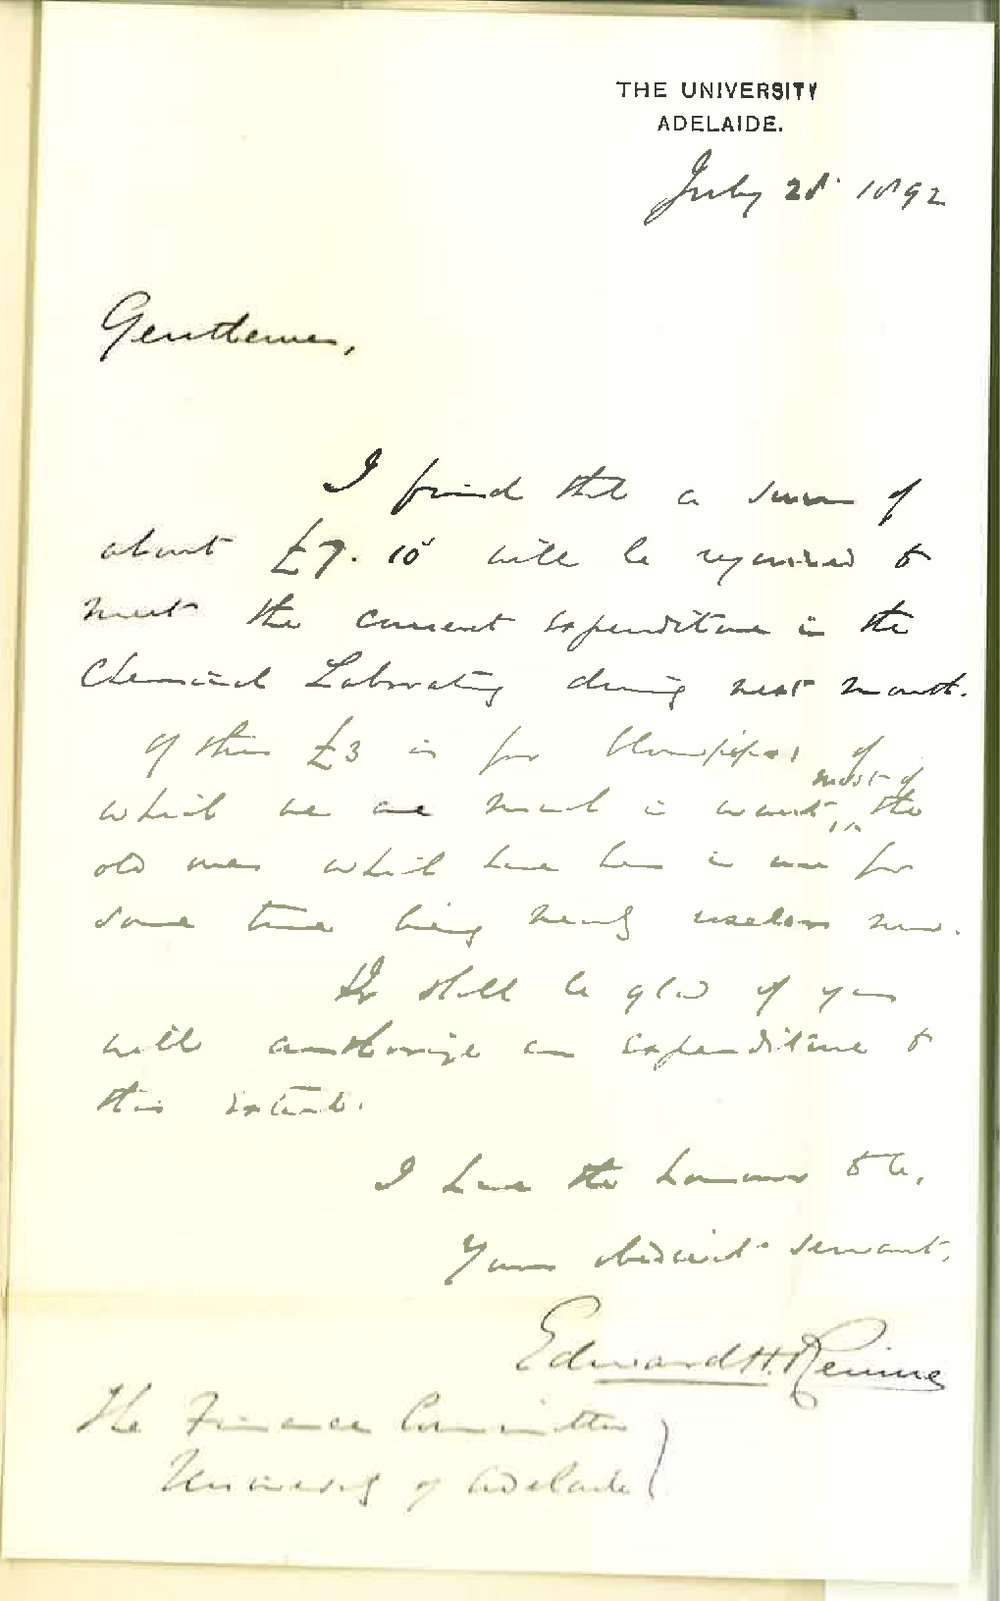 THE UNIVERSITY
ADELAIDE.
July 28 1892
Gentlemen,
I find that a sum of
about £7. 10 will be required to
meet the current expenditure in the
Chemical Laboratory during next month.
Of this £3 is for blowpipes of
most of
which we are much in want, the
old ones which have been in use for
some time being nearly useless now.
I shall be glad if you
will authorize an expenditure to
this extent.
I have the honour to be,
Your obedient servant,
Edward H. Rennie
The Finance Committee
University of Adelaide